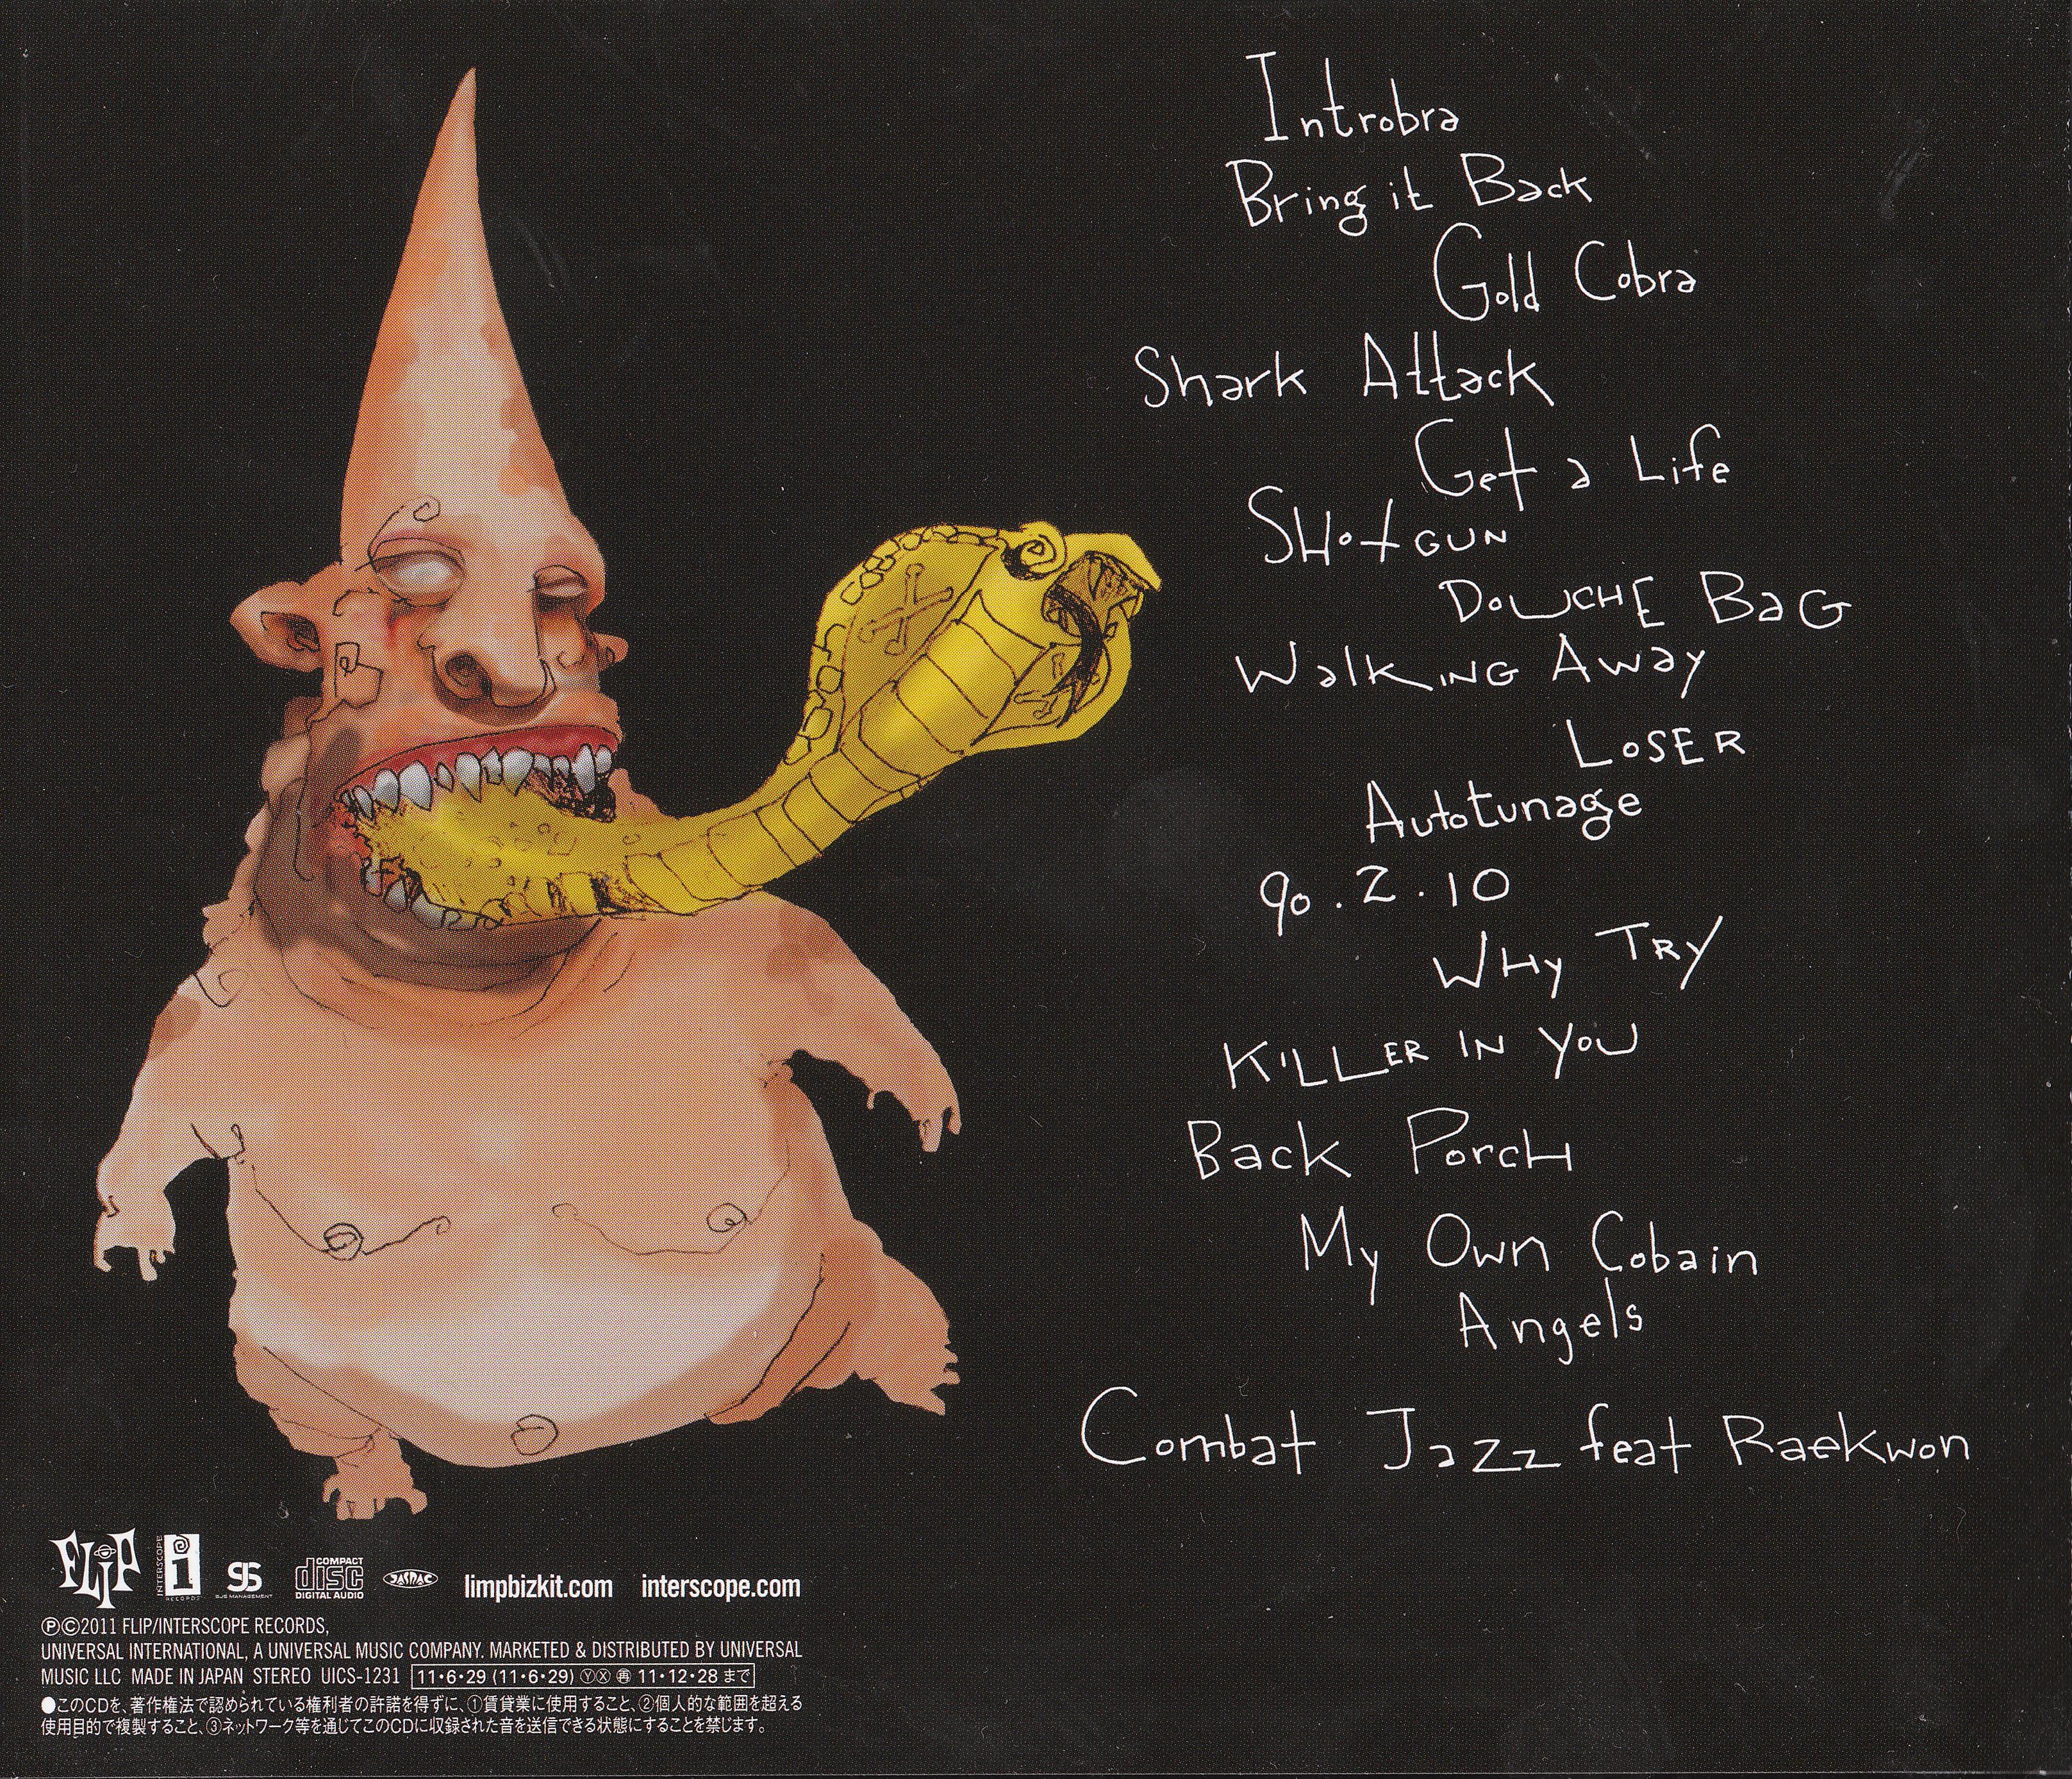 Introbra
Bring it Back
Gold Cobra
Shark Attack
Get a Life
SHotGUN
DOUCHE BaG
WalkING Away
LoSER
Autotunage
90.2.10
WHy TRY
KILLER IN YOU
Back PorcH
My Own Cobain
Angels
Combat JaZz feat Raekwon
FLiP
INTERSCOPE
i
RECORDS
SJS
SJS MANAGEMENT
COMPACT
disc
DIGITAL AUDIO
JASRAC
limpbizkit.com interscope.com
Ⓟ©2011 FLIP/INTERSCOPE RECORDS,
UNIVERSAL INTERNATIONAL, A UNIVERSAL MUSIC COMPANY. MARKETED & DISTRIBUTED BY UNIVERSAL
MUSIC LLC MADE IN JAPAN STEREO UICS-1231 11・6・29 (11・6・29) ⓎⓍ㊞再 11・12・28 まで
●このCDを、著作権法で認められている権利者の許諾を得ずに、①賃貸業に使用すること、②個人的な範囲を超える
使用目的で複製すること、③ネットワーク等を通じてこのCDに収録された音を送信できる状態にすることを禁じます。